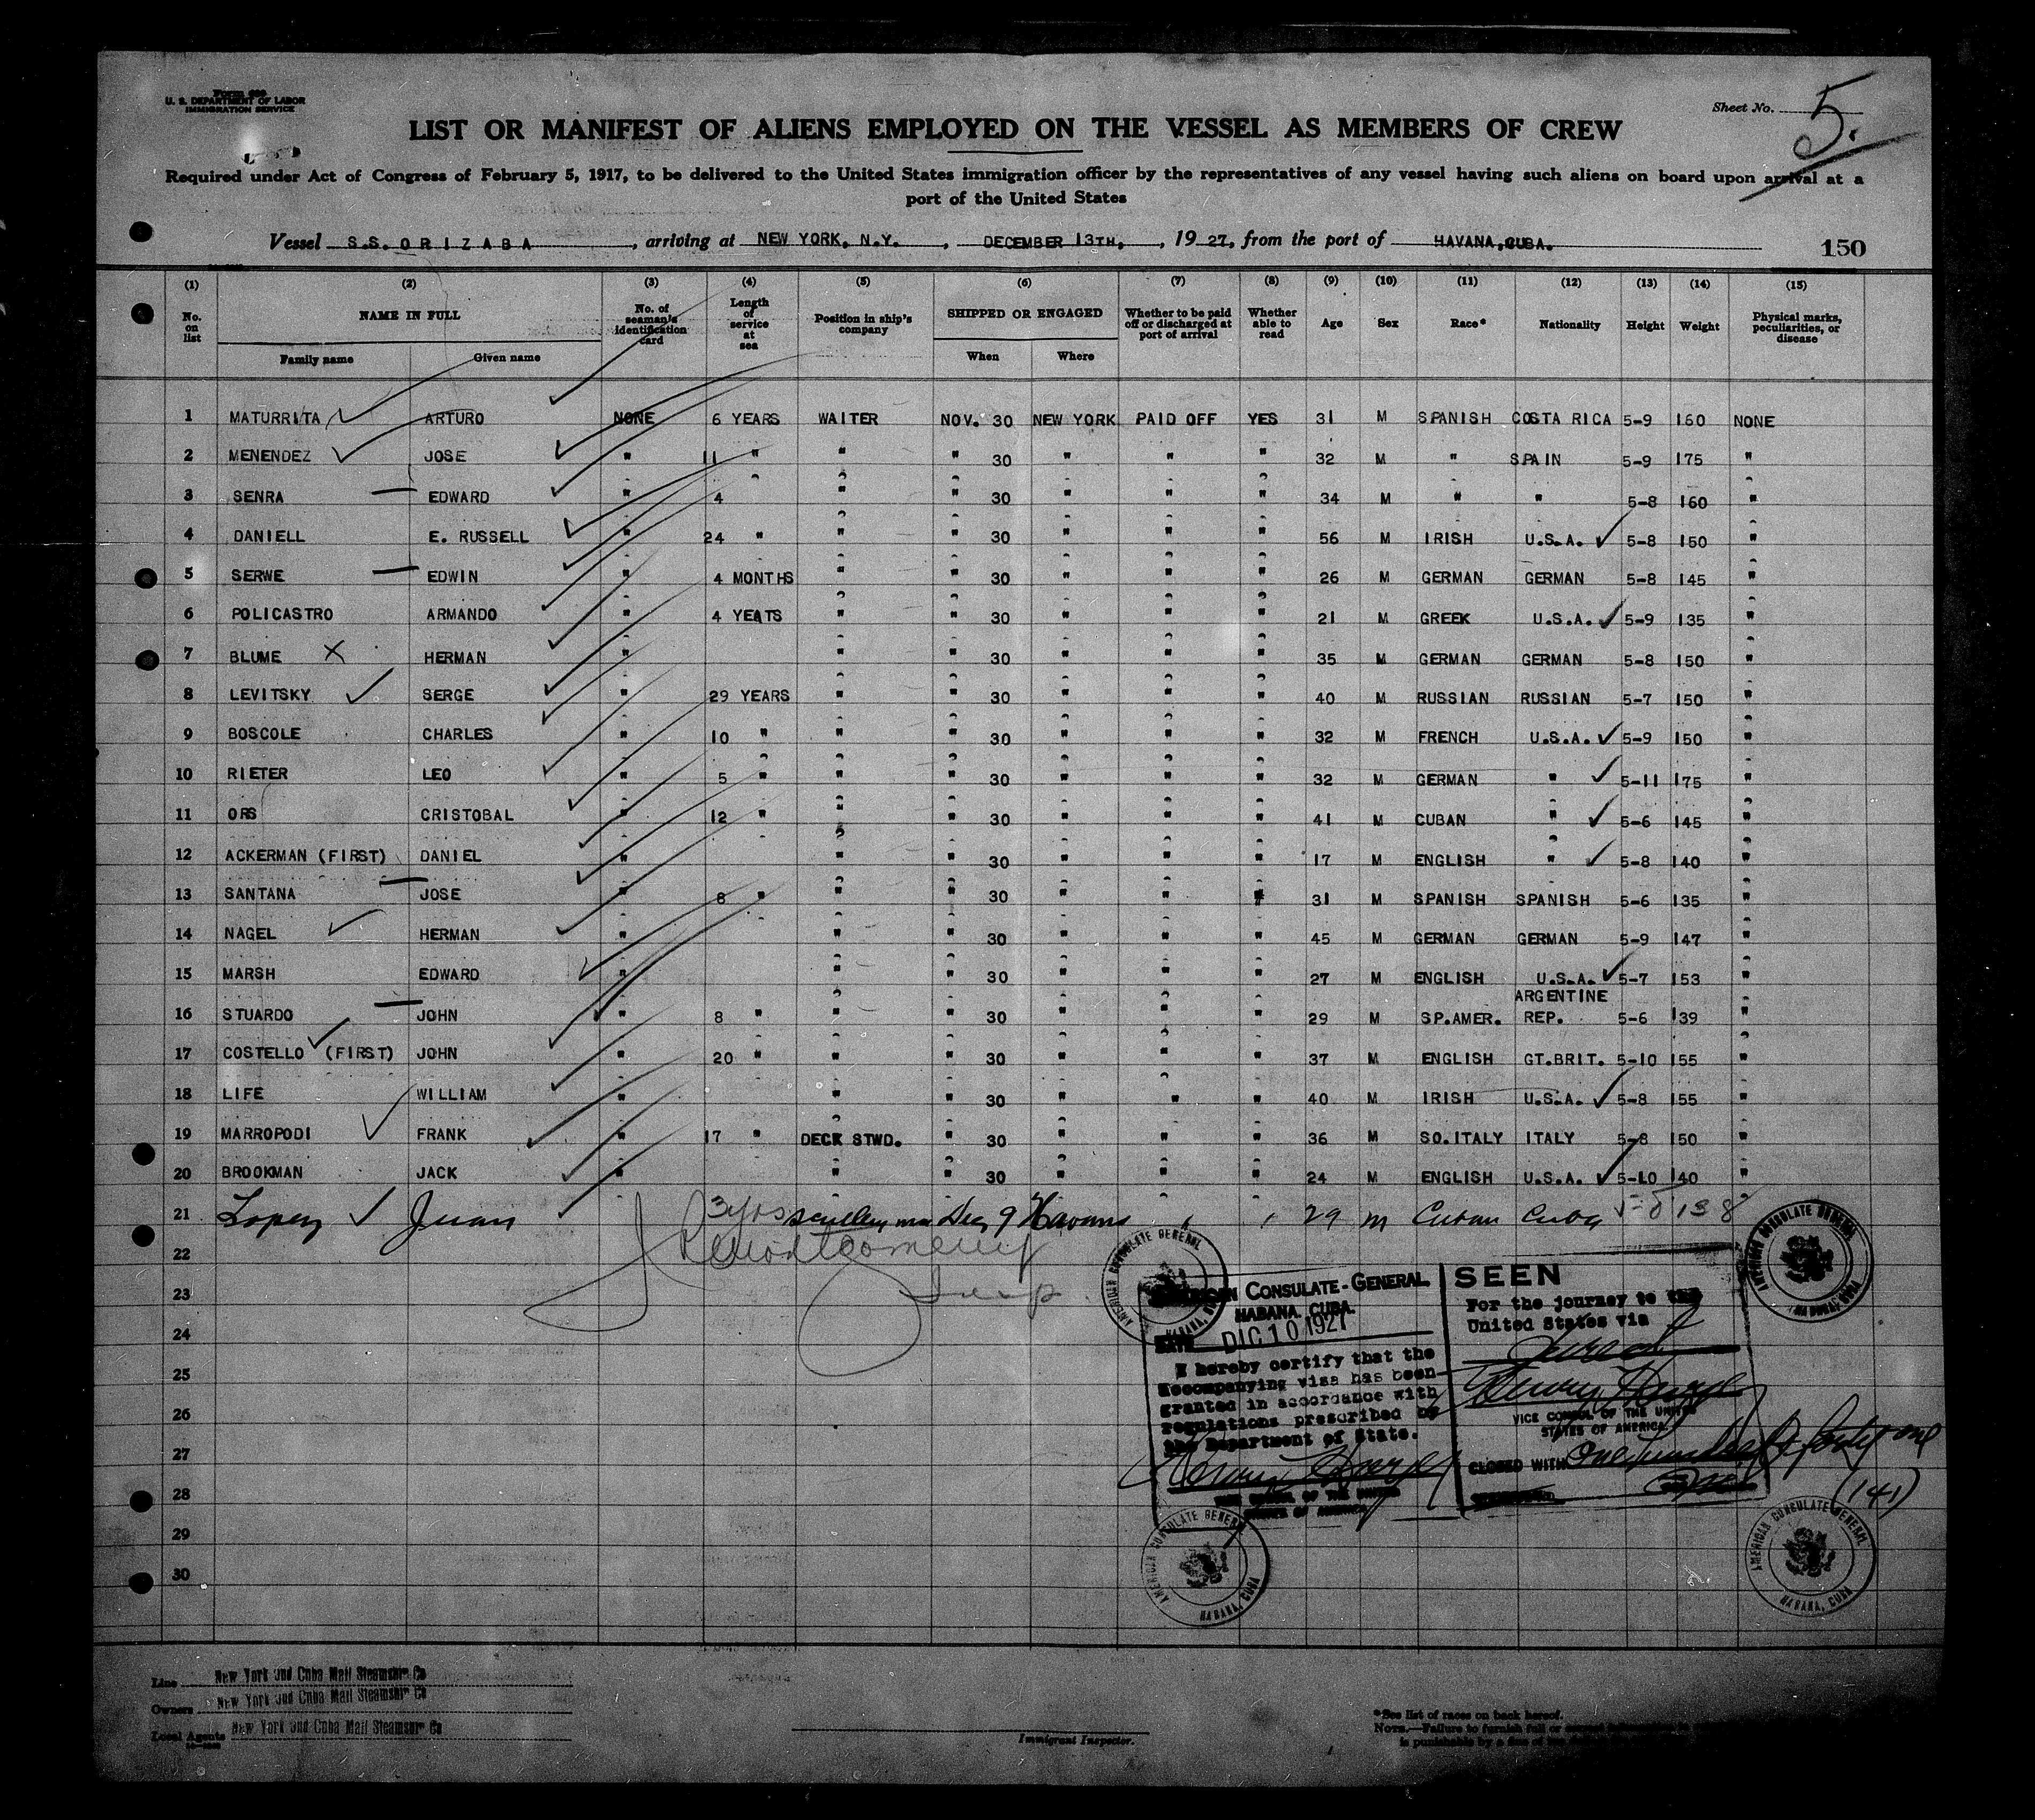 Form 689
U. S. DEPARTMENT OF LABOR
IMMIGRATION SERVICE
Sheet No. 5.
LIST OR MANIFEST OF ALIENS EMPLOYED ON THE VESSEL AS MEMBERS OF CREW
Required under Act of Congress of February 5, 1917, to be delivered to the United States immigration officer by the representatives of any vessel having such aliens on board upon arrival at a
port of the United States
Vessel S.S. ORIZABA, arriving at NEW YORK, N.Y., DECEMBER 13TH, 1927, from the port of HAVANA, CUBA.
150
(1) (2) (3) (4) (5) (6) (7) (8) (9) (10) (11) (12) (13) (14) (15)
No. on list NAME IN FULL No. of seaman's identification card Length of service at sea Position in ship's company SHIPPED OR ENGAGED Whether to be paid off or discharged at port of arrival Whether able to read Age Sex Race* Nationality Height Weight Physical marks, peculiarities, or disease
Family name Given name When Where
1 MATURRITA ARTURO NONE 6 YEARS WAITER NOV. 30 NEW YORK PAID OFF YES 31 M SPANISH COSTA RICA 5-9 160 NONE
2 MENENDEZ JOSE " 11 " " " 30 " " " 32 M " SPAIN 5-9 175 "
3 SENRA EDWARD " 4 " " " 30 " " " 34 M " " 5-8 160 "
4 DANIELL E. RUSSELL " 24 " " " 30 " " " 56 M IRISH U.S.A. 5-8 150 "
5 SERWE EDWIN " 4 MONTHS " " 30 " " " 26 M GERMAN GERMAN 5-8 145 "
6 POLICASTRO ARMANDO " 4 YEATS " " 30 " " " 21 M GREEK U.S.A. 5-9 135 "
7 BLUME HERMAN " " " 30 " " " 35 M GERMAN GERMAN 5-8 150 "
8 LEVITSKY SERGE " 29 YEARS " " 30 " " " 40 M RUSSIAN RUSSIAN 5-7 150 "
9 BOSCOLE CHARLES " 10 " " " 30 " " " 32 M FRENCH U.S.A. 5-9 150 "
10 RIETER LEO " 5 " " " 30 " " " 32 M GERMAN " 5-11 175 "
11 ORS CRISTOBAL " 12 " " " 30 " " " 41 M CUBAN " 5-6 145 "
12 ACKERMAN (FIRST) DANIEL " " " 30 " " " 17 M ENGLISH " 5-8 140 "
13 SANTANA JOSE " 8 " " " 30 " " " 31 M SPANISH SPANISH 5-6 135 "
14 NAGEL HERMAN " " " 30 " " " 45 M GERMAN GERMAN 5-9 147 "
15 MARSH EDWARD " " " 30 " " " 27 M ENGLISH U.S.A. 5-7 153 "
16 STUARDO JOHN " 8 " " " 30 " " " 29 M SP.AMER. ARGENTINE REP. 5-6 139 "
17 COSTELLO (FIRST) JOHN " 20 " " " 30 " " " 37 M ENGLISH GT.BRIT. 5-10 155 "
18 LIFE WILLIAM " " " 30 " " " 40 M IRISH U.S.A. 5-8 155 "
19 MARROPODI FRANK " 17 " DECK STWD. " 30 " " " 36 M SO.ITALY ITALY 5-8 150 "
20 BROOKMAN JACK " " " 30 " " " 24 M ENGLISH U.S.A. 5-10 140 "
21 Lopez Juan 3 yrs scullery man Dec 9 Havana " " 29 m Cuban Cuba 138
22
23
24
25
26
27
28
29
30
Montgomery
AMERICAN CONSULATE GENERAL HABANA, CUBA
AMERICAN CONSULATE-GENERAL
HABANA, CUBA.
DATE DIC 10 1927
I hereby certify that the
accompanying visa has been
granted in accordance with
regulations prescribed by
the Department of State.
VICE CONSUL OF THE UNITED
STATES OF AMERICA
SEEN
For the journey to the
United States via
direct
VICE CONSUL OF THE UNITED
STATES OF AMERICA
CLOSED WITH One hundred & forty one
(141)
AMERICAN CONSULATE GENERAL HABANA, CUBA
AMERICAN CONSULATE GENERAL HABANA, CUBA
AMERICAN CONSULATE GENERAL HABANA, CUBA
Line New York and Cuba Mail Steamship Co
Owners New York and Cuba Mail Steamship Co
Local Agents New York and Cuba Mail Steamship Co
Immigrant Inspector.
*See list of races on back hereof.
NOTE.—Failure to furnish full or
is punishable by a fine of